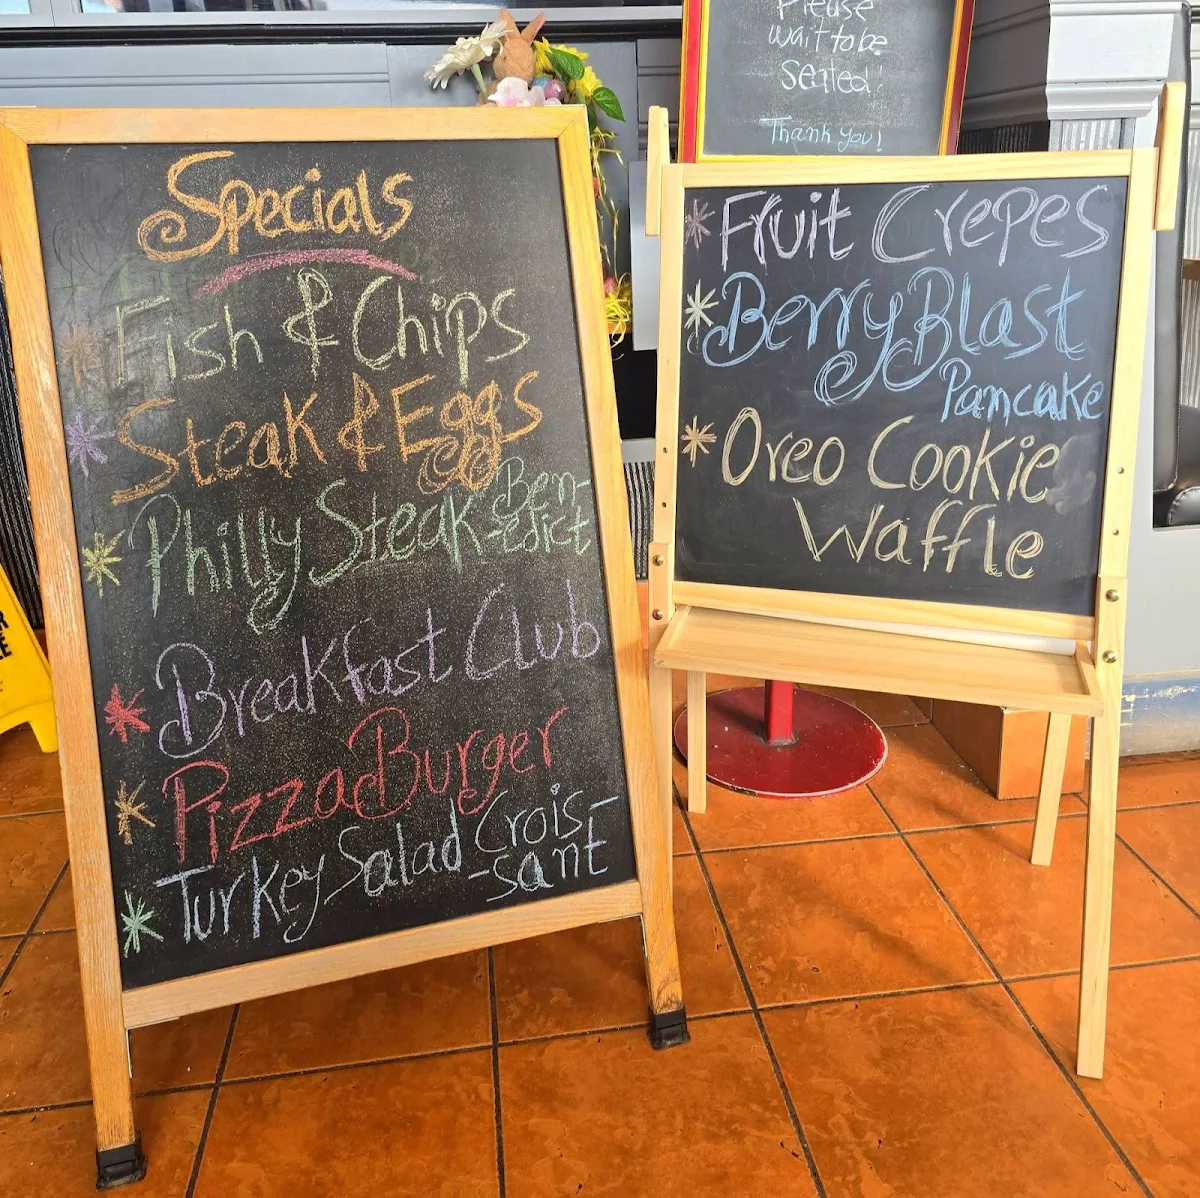 Please
wait to be
Seated!
Thank you!
Specials
Fish & Chips
Steak & Eggs
Philly Steak Ben-
-edict
Breakfast Club
Pizza Burger
Turkey Salad Crois-
-sant
Fruit Crepes
Berry Blast
Pancake
Oreo Cookie
Waffle